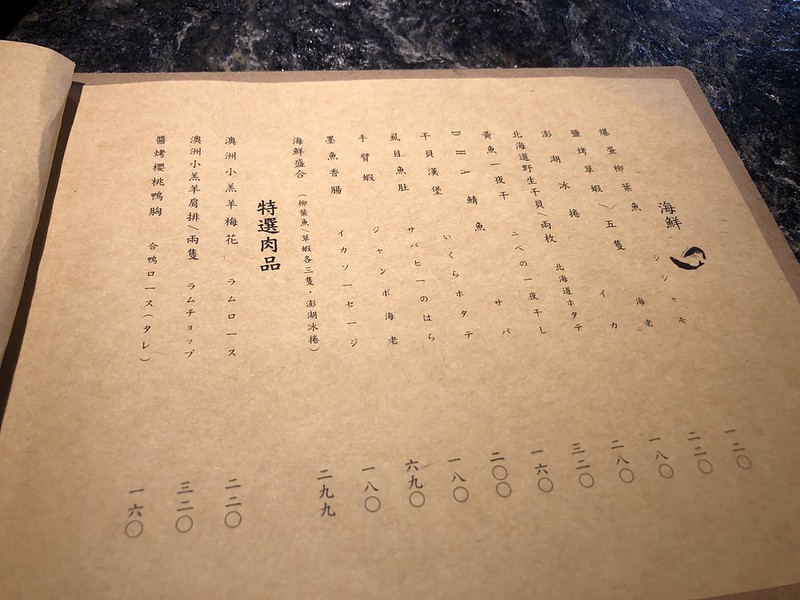 海鮮
爆蛋柳葉魚 シシャモ 一二〇
鹽烤草蝦/五隻 海老 二二〇
澎湖冰捲 イカ 一八〇
北海道野生干貝/兩枚 北海道ホタテ 二八〇
黃魚一夜干 ニベの一夜干し 三二〇
鯖魚 サバ 一六〇
干貝漢堡 いくらホタテ 二〇〇
虱目魚肚 サバヒーのはら 一八〇
手臂蝦 ジャンボ海老 六九〇
墨魚香腸 イカソーセージ 一八〇
海鮮盛合 (柳葉魚/草蝦各三隻、澎湖冰捲) 二九九
特選肉品
澳洲小羔羊梅花 ラムロース 二二〇
澳洲小羔羊肩排/兩隻 ラムチョップ 三二〇
醬烤櫻桃鴨胸 合鴨ロース(タレ) 一六〇